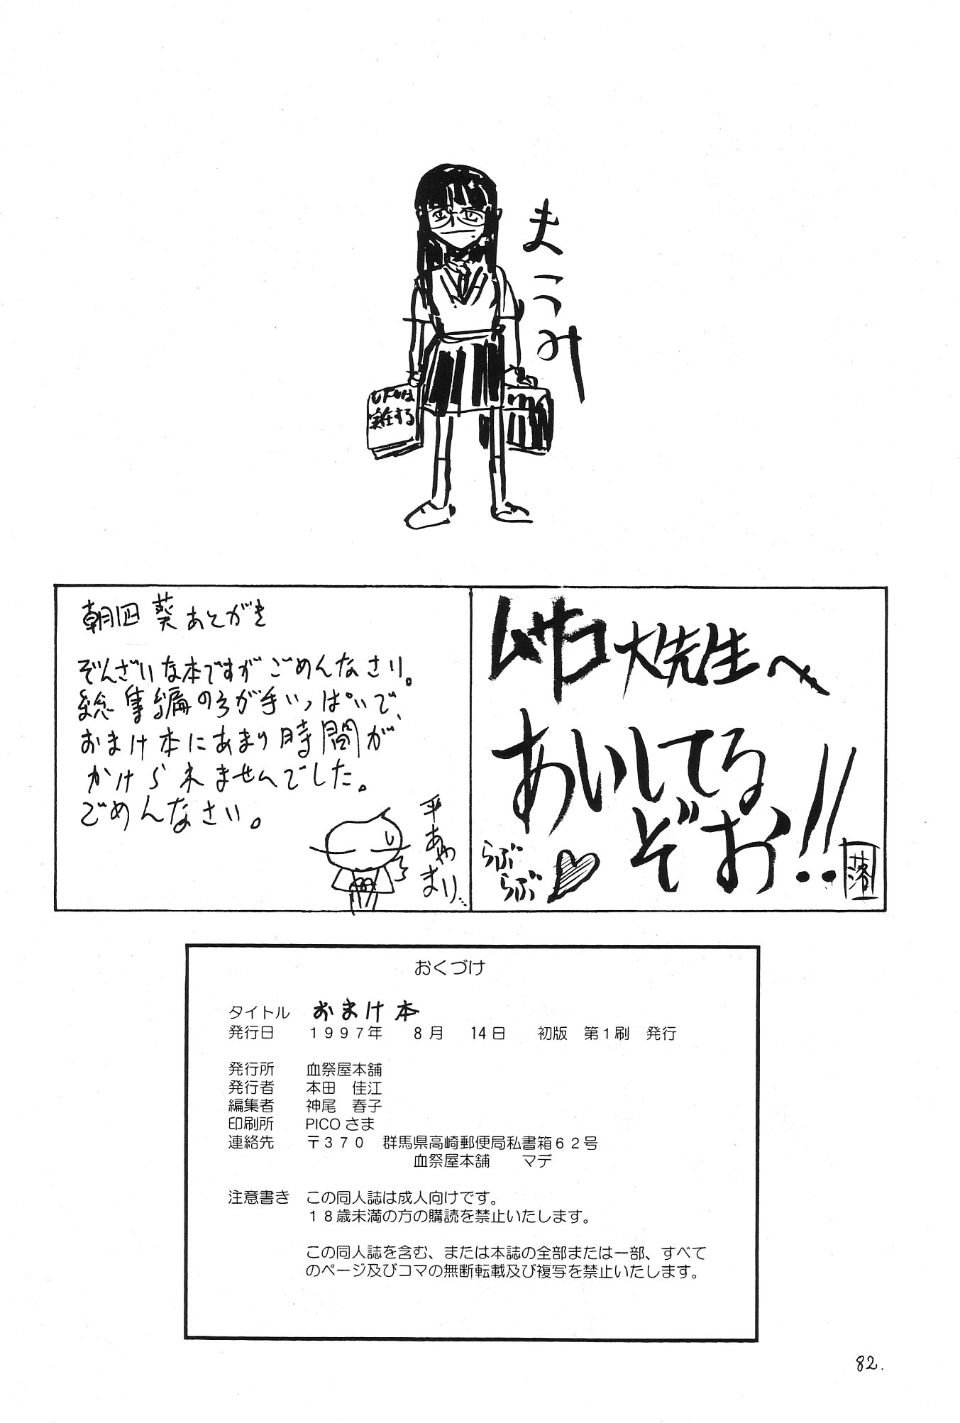 まつみ
UFOは
実在する
ムサコ大先生へ
あいしてる
ぞお!!
らぶ
らぶ♥
落
朝凪 葵 あとがき
ぞんざいな本ですがごめんなさい。
総集編の方が手いっぱいで、
おまけ本にあまり時間が
かけられませんでした。
ごめんなさい。
平あや
まり…
おくづけ
タイトル おまけ本
発行日 1997年 8月 14日 初版 第1刷 発行
発行所 血祭屋本舗
発行者 本田 佳江
編集者 神尾 春子
印刷所 PICOさま
連絡先 〒370 群馬県高崎郵便局私書箱62号
血祭屋本舗 マデ
注意書き この同人誌は成人向けです。
18歳未満の方の購読を禁止いたします。
この同人誌を含む、または本誌の全部または一部、すべて
のページ及びコマの無断転載及び複写を禁止いたします。
82.